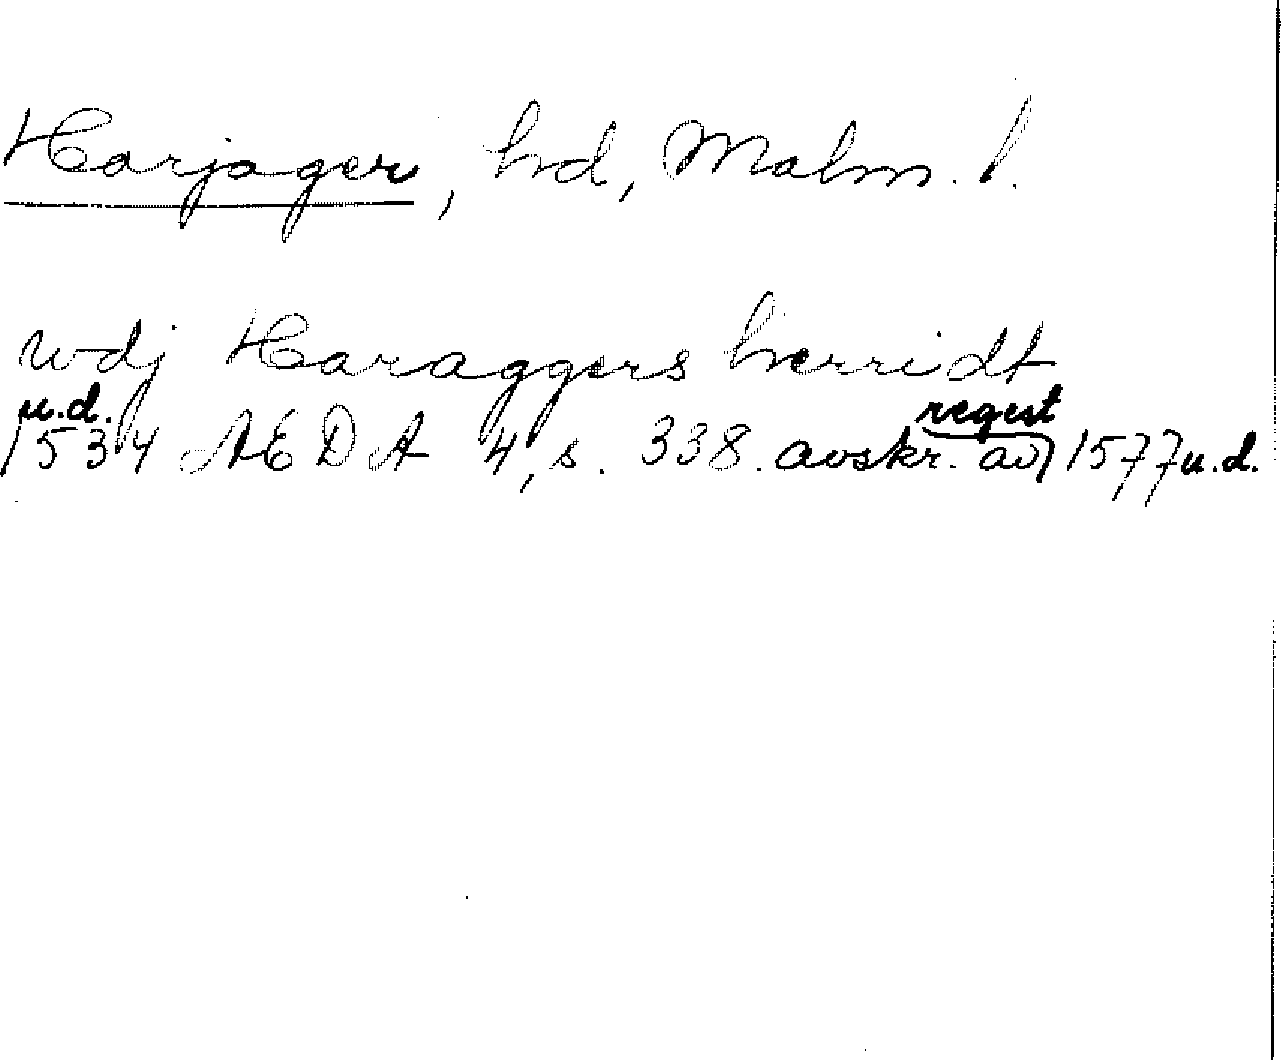 Harjager, hd, Malm. l.
wdj Haraggers herridt
u.d. regist
1534 AEDA 4, s. 338. avskr. av 1577 u.d.